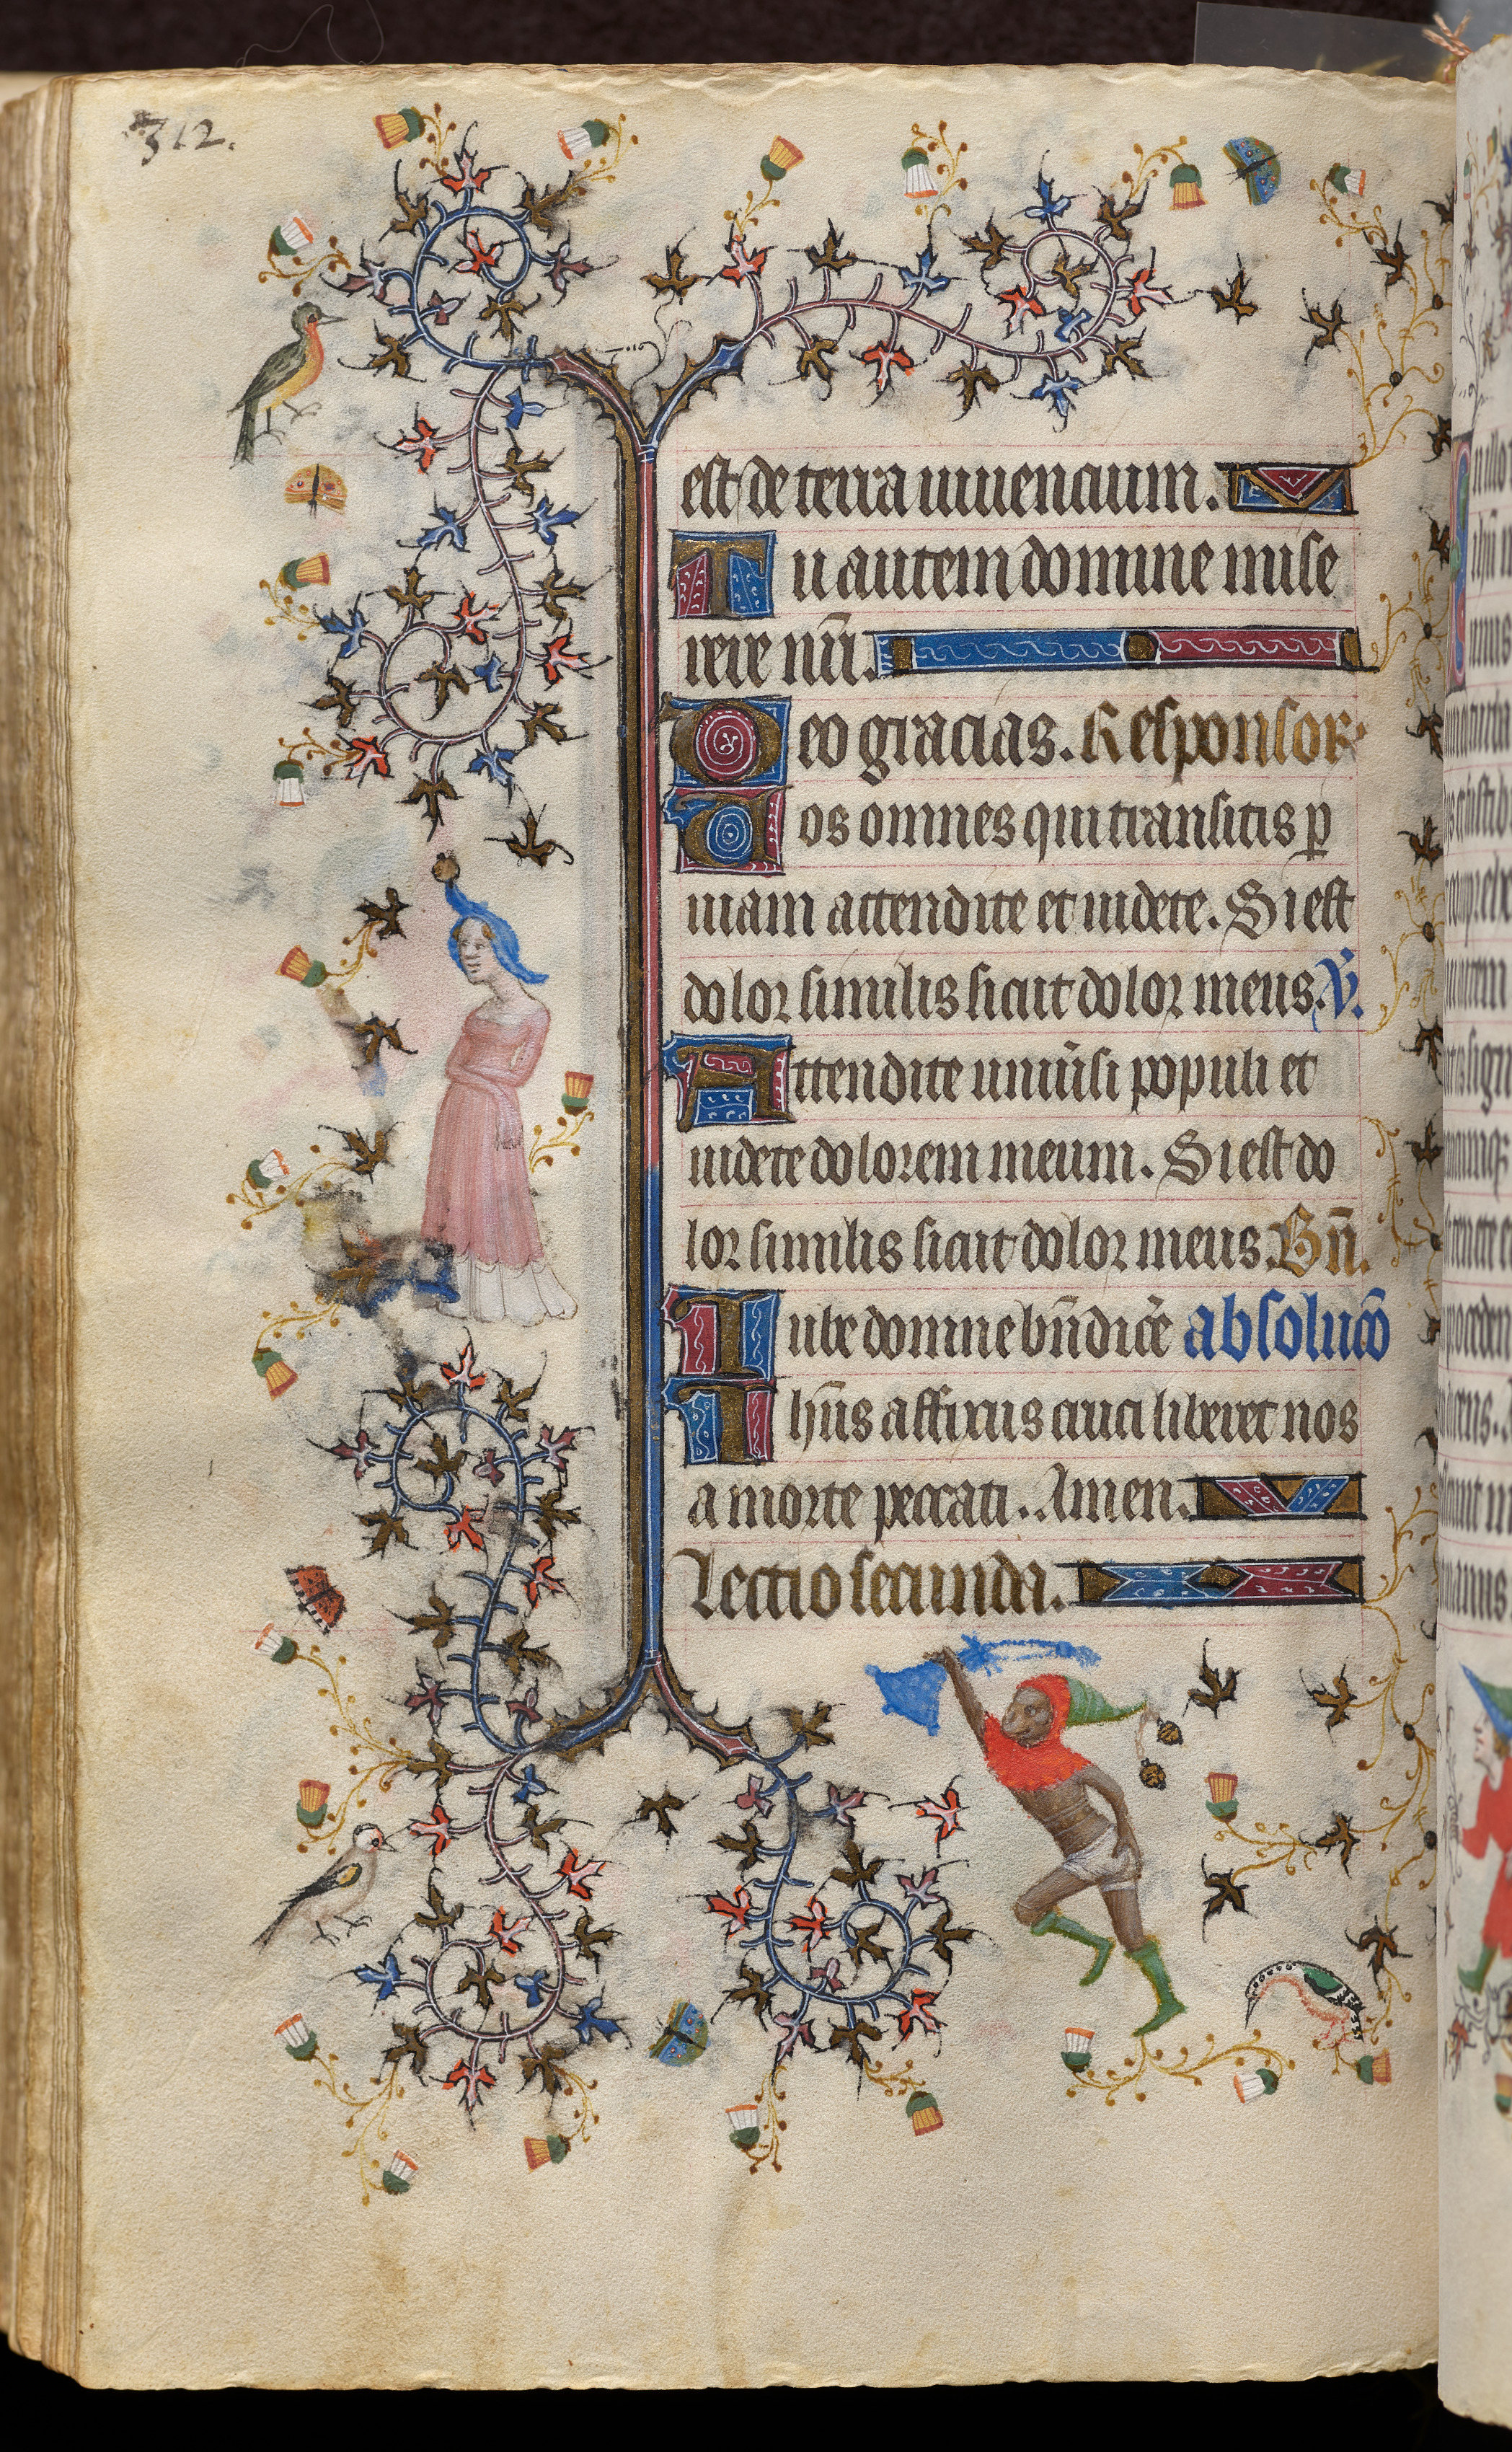 312.
est de terra uiuencium.
Tu autem domine mise
rere nr̄i.
Deo gracias. Responsor
Uos omnes qui transitis ꝑ
uiam attendite et uidete. Si est
dolor similis sicut dolor meus. V̄.
Attendite uniūsi populi et
uidete dolorem meum. Si est do
lor similis sicut dolor meus. Bn̄.
Iube domne bn̄dic̄e absoluc̄o
Ihūs affixus cruci liberet nos
a morte peccati. Amen.
Lectio secunda.